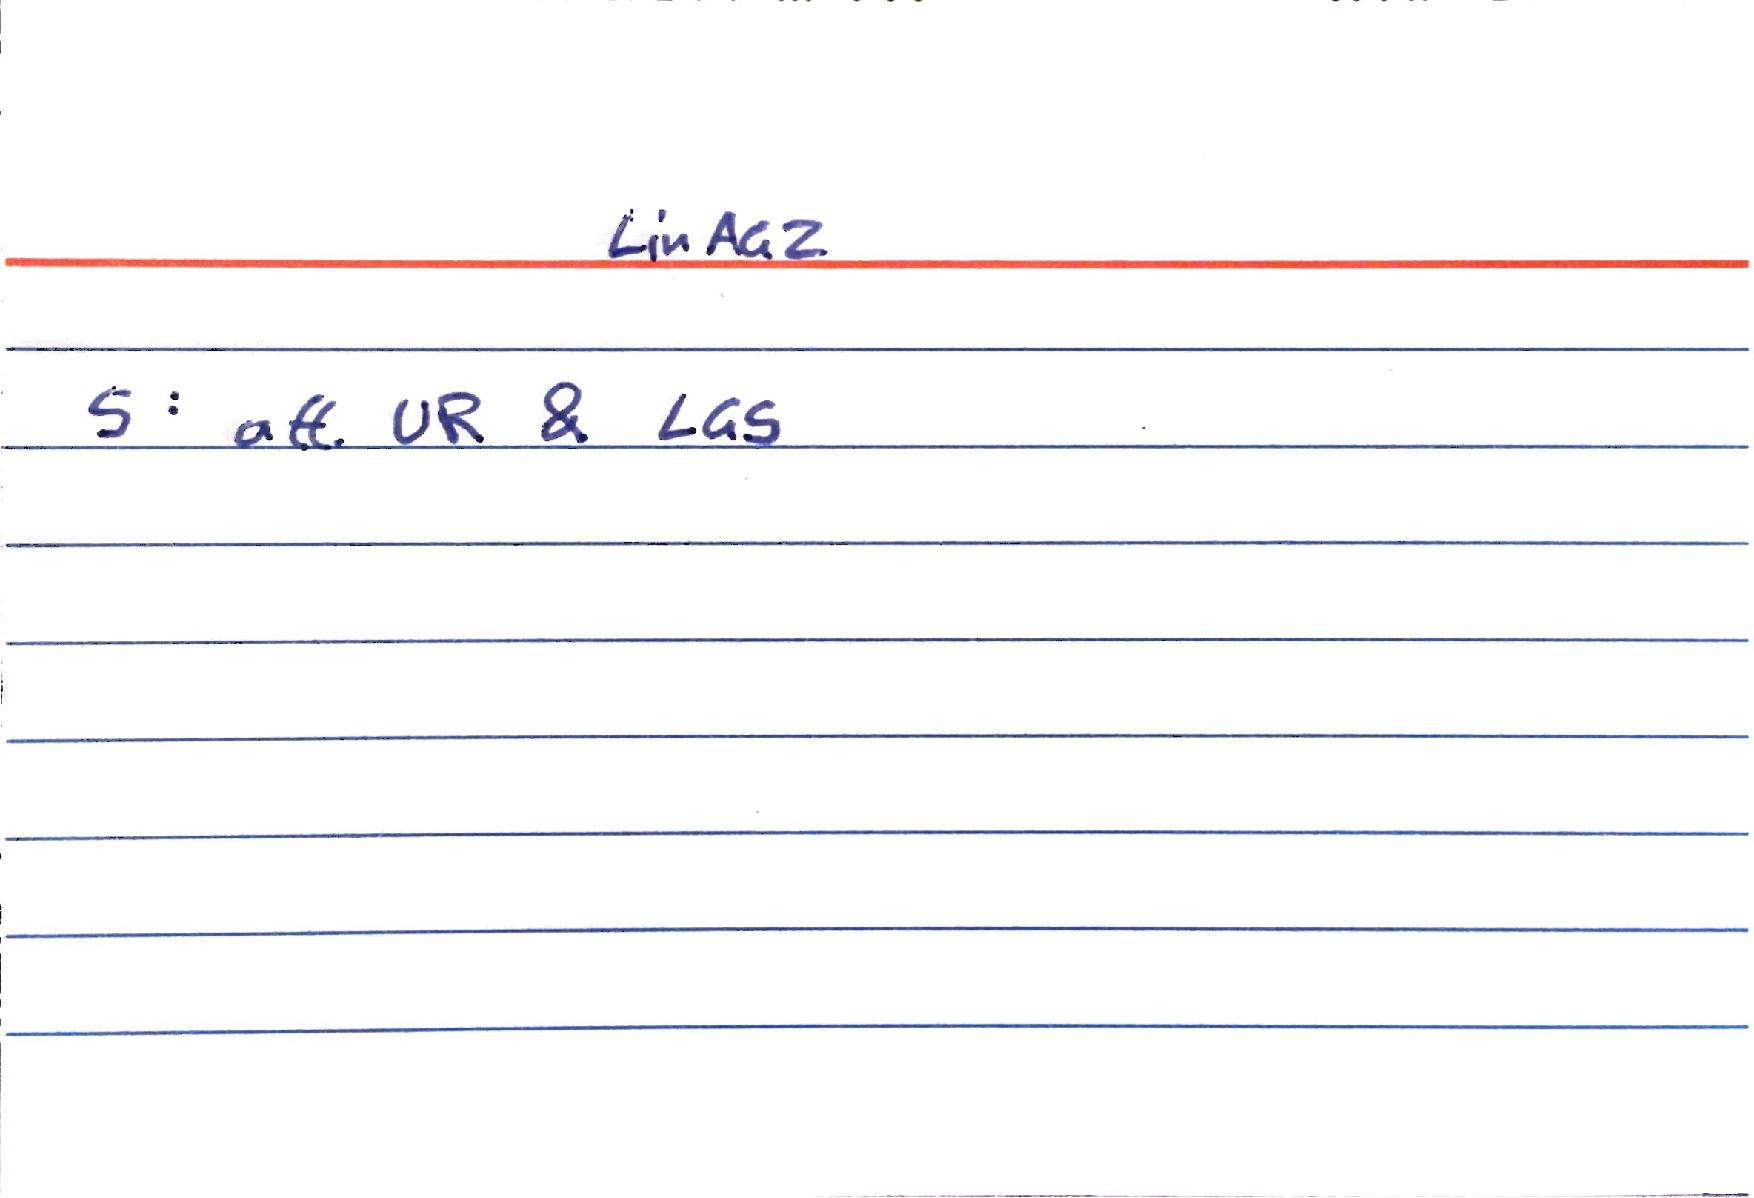 LinAG2
S: aff. UR & LGS